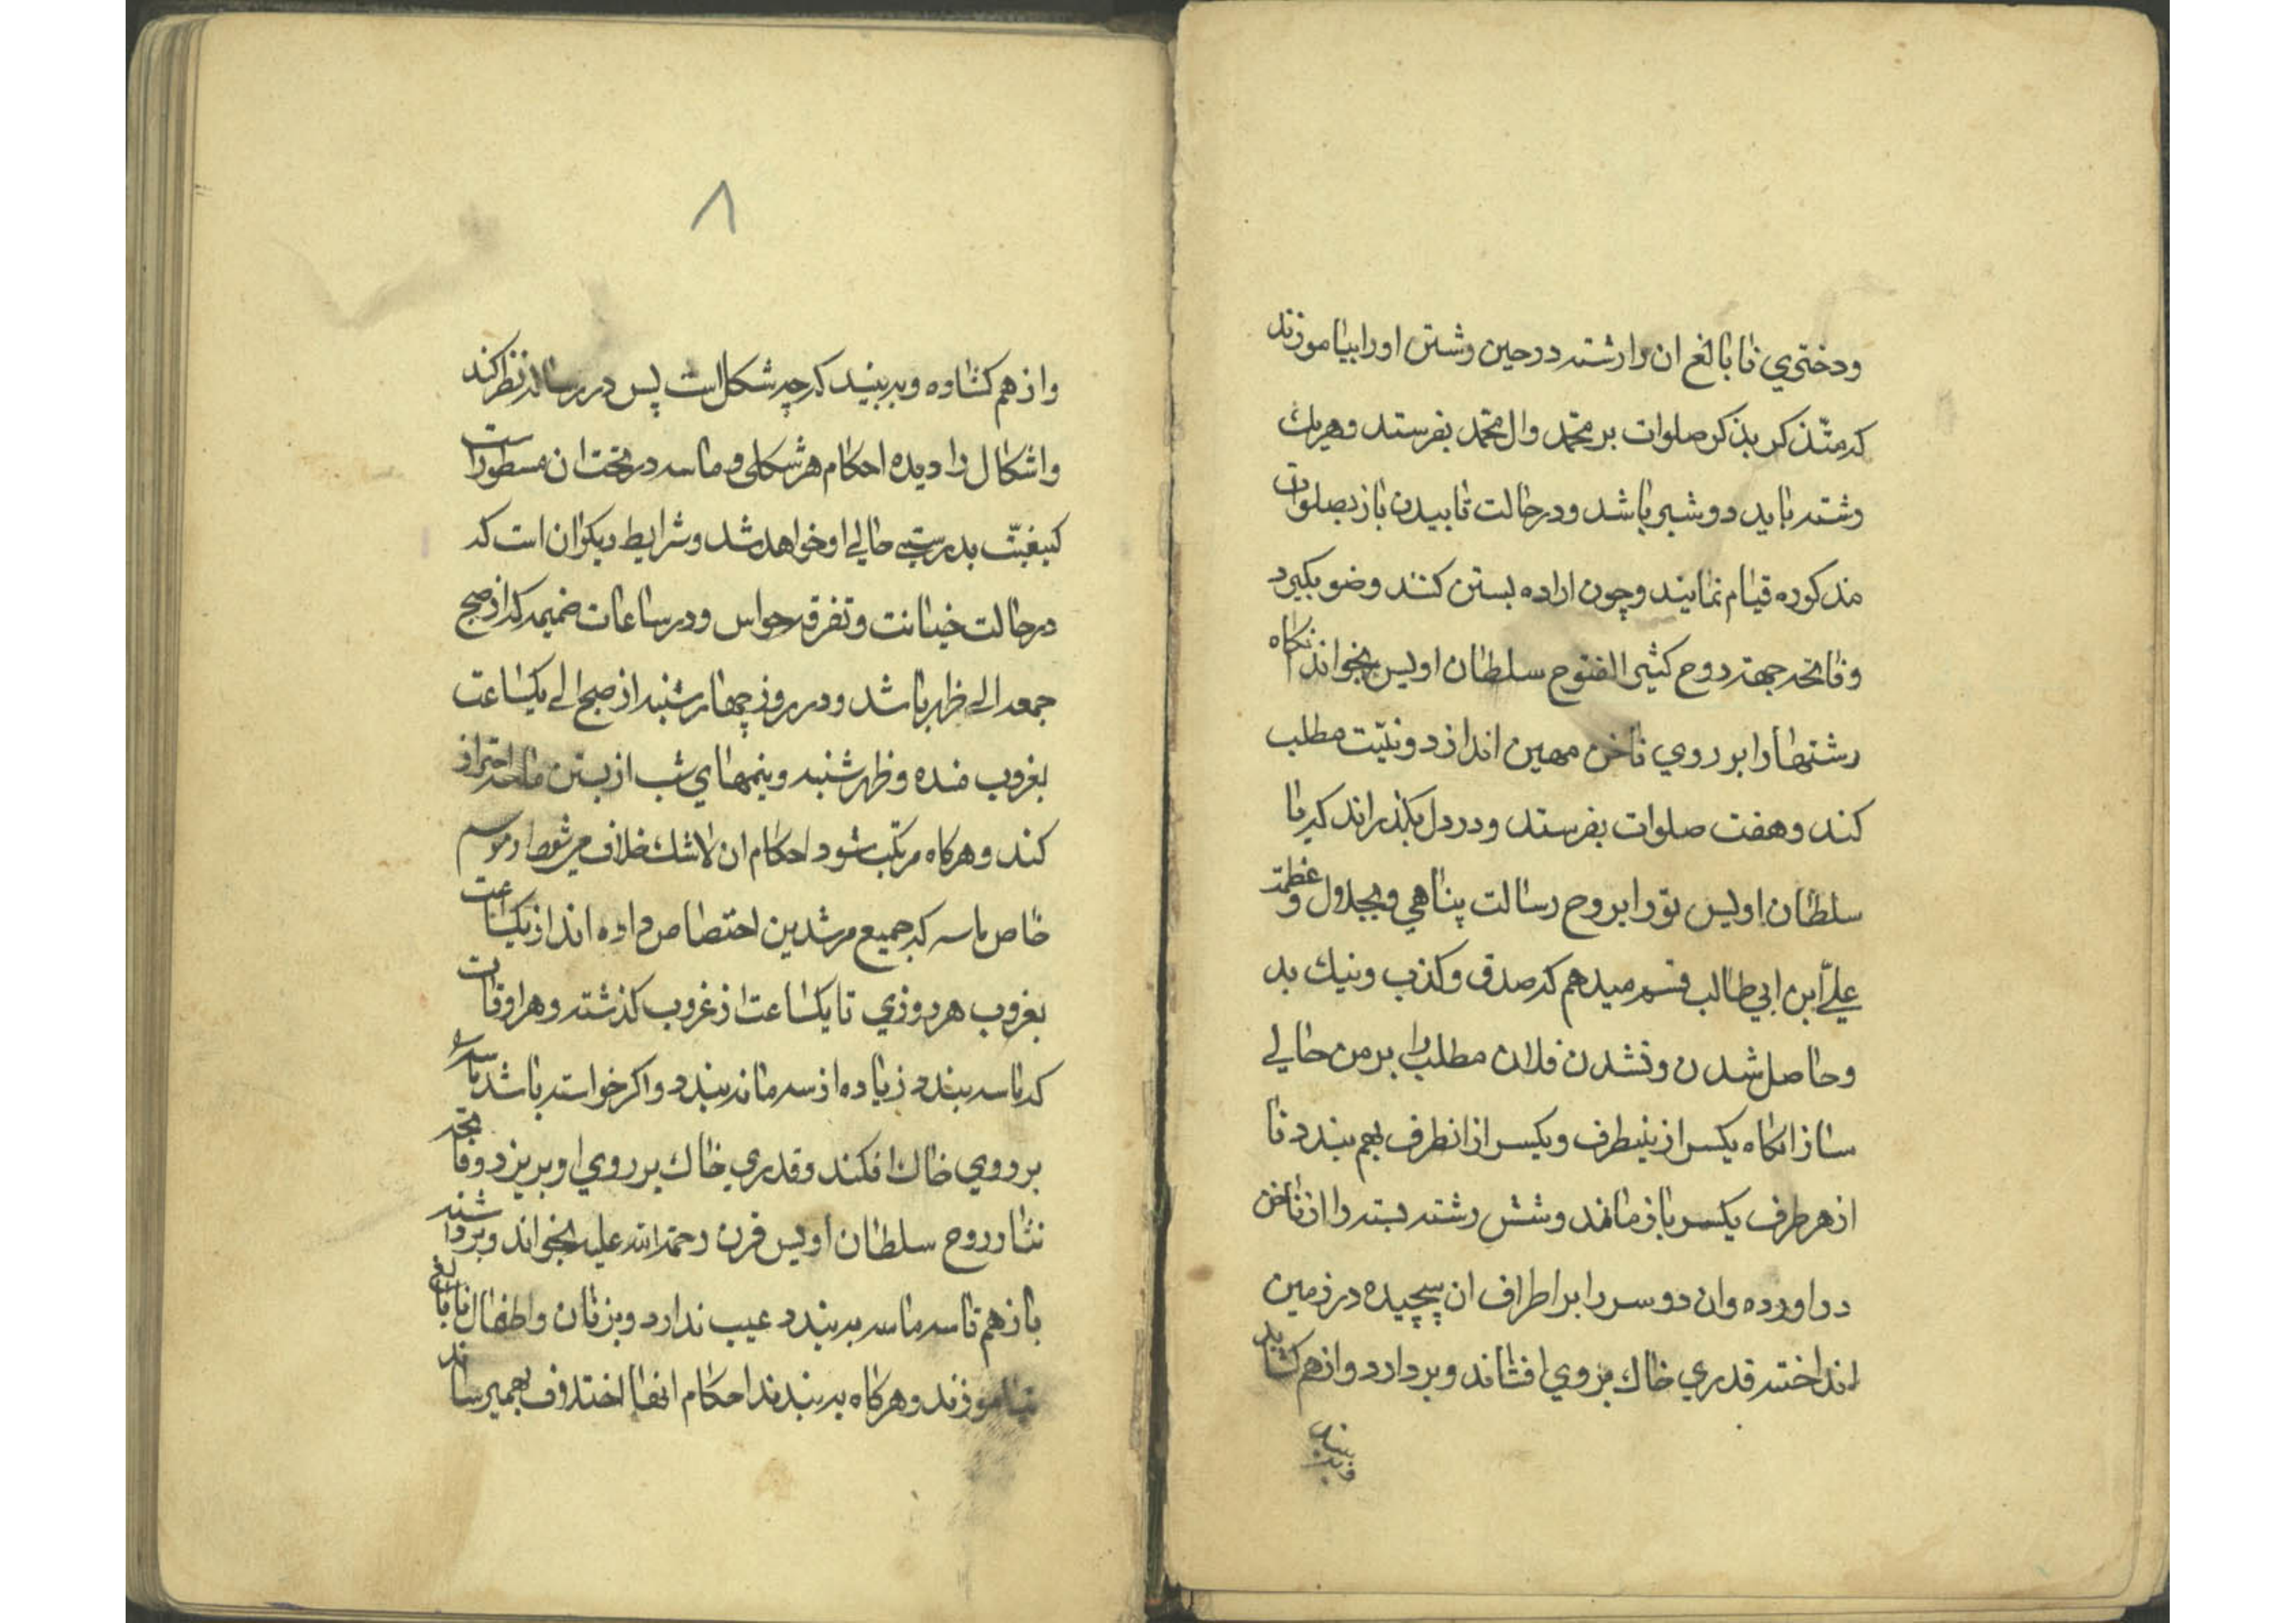 ودختري نا بالغ ان را رشته در حين رشتن اورا بياموزند
كه متذكر بذكر صلوات بر محمّد وال محمّد بفرستد وهريك
رشته بايد دو شبر باشد ودر حالت تابيدن باز بصلوات
مذكوره قيام نمايند وچون اراده بستن كنند وضو بگيرد
وفاتحه جهة روح كثير الفتوح سلطان اويس بخواند انكاه
رشتهارا بر روي ناخن مهين اندازد ونيّت مطلب
كند وهفت صلوات بفرستد ودر دل بگذراند كه يا
سلطان اويس تورا بروح رسالت پناهي وبجلال وعظمة
عليّ ابن ابي طالب قسم ميدهم كه صدق وكذب ونيك بد
وحاصل شدن ونشدن فلان مطلب را بر من حالي
ساز انكاه يكسر از ينطرف ويكسر از انطرف بهم بندد تا
از هر طرف يكسر باز ماند وشش رشته بسته را از ناخن
در اورده وان دو سر را بر اطراف ان پيچيده در زمين
انداخته قدري خاك بر وي افشاند وبر دارد واز هم كشايد
وببيند
٨
واز هم كشاده وبه بيند كه چه شكل است پس در رساله نظر كند
واشكال را ديده احكام هر شكلى وماسه در تحت ان مسطور است
كيفيّت بدرستي حالي او خواهد شد وشرايط ديكر ان است كه
در حالت خيانت وتفرقه حواس ودر ساعات ضميمه كه از صبح
جمعه الى ظهر باشد ودر روز چهار شنبه از صبح الى يكساعت
بغروب مانده وظهر شنبه ونيمهاي شب از بستن ماسه احتراز
كند وهركاه مرتكب شود احكام ان لاشك خلاف مي شود وموسم
خاص ماسه كه جميع مرشدين اختصاص داده اند از يكساعت
بغروب هر روزي تا يكساعت از غروب كذشته وهر اوقات
كه ماسه بندد زياده از سه ماسه نه بندد واكر خواسته باشد ماسه
بر روي خاك افكند وقدري خاك بر روي او بريزد وفاتحه
نثار روح سلطان اويس قرن رحمة الله عليه بخواند وبر داشته
باز هم تا سه ماسه به بندد عيب ندارد وبزنان واطفال نا بالغ
نياموزند وهركاه به بندند احكام انها اختلاف بهم ميرساند